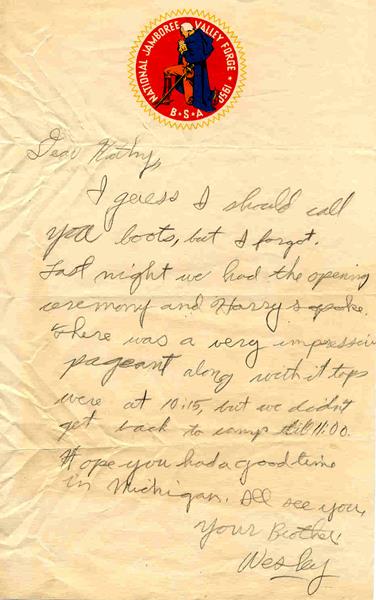 NATIONAL JAMBOREE VALLEY FORGE 1950
B·S·A
Dear Kathy,
I guess I should call
you boots, but I forgot.
Last night we had the opening
ceremony and Harry s spoke.
There was a very impressive
pageant along with it taps
were at 10:15, but we didn't
get back to camp till 11:00.
Hope you had a good time
in Michigan. All see you,
Your Brother
Wesley